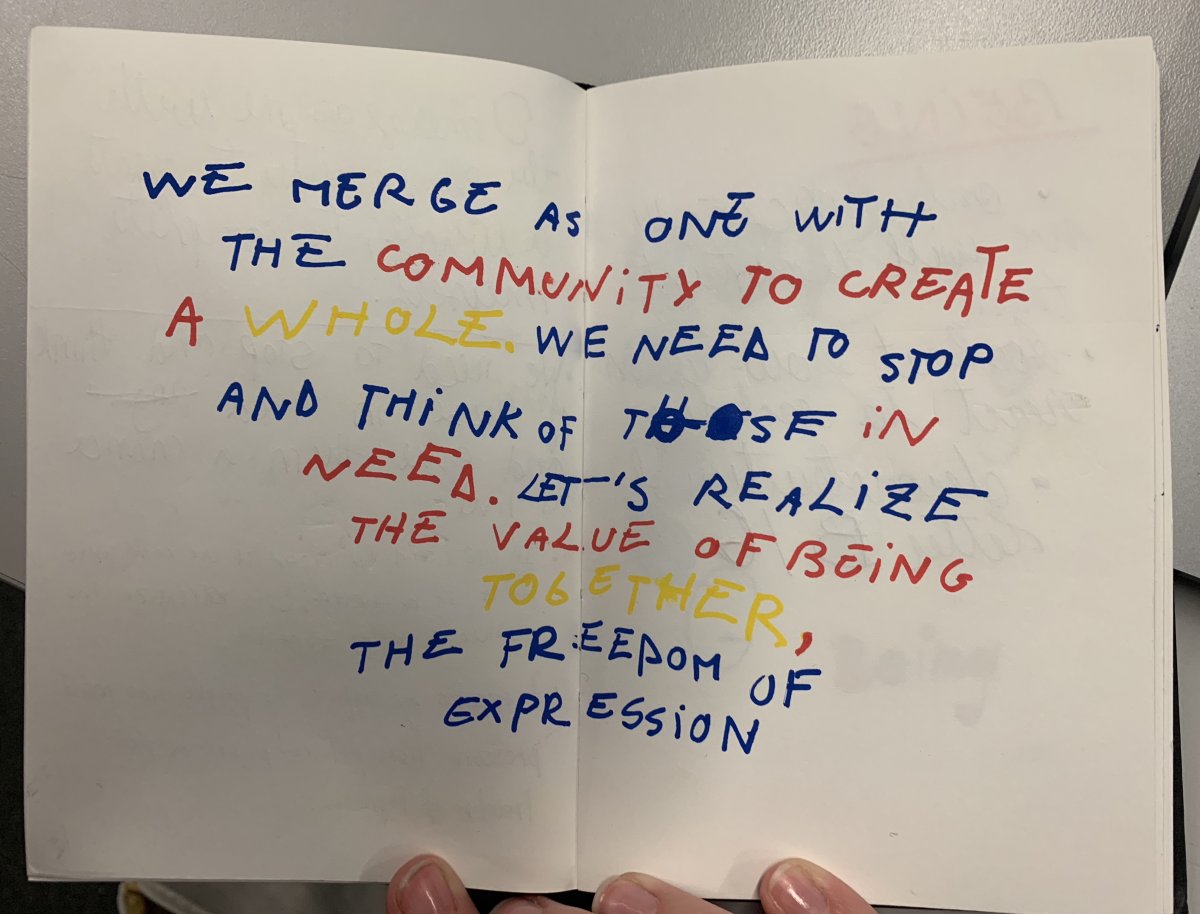 WE MERGE AS ONE WITH
THE COMMUNITY TO CREATE
A WHOLE. WE NEED TO STOP
AND THINK OF THOSE IN
NEED. LET'S REALIZE
THE VALUE OF BEING
TOGETHER,
THE FREEDOM OF
EXPRESSION
BEING